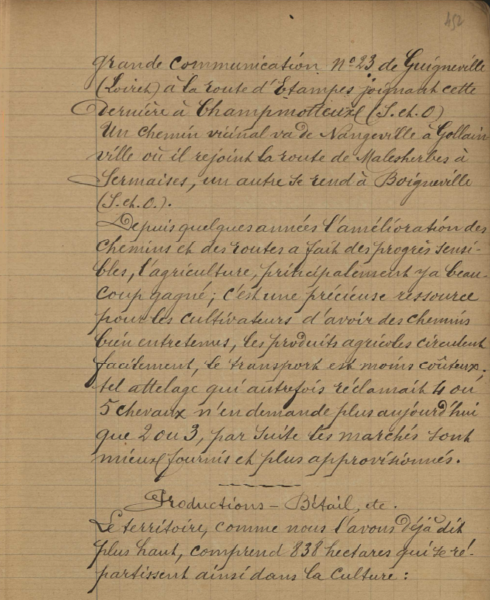 452
grande communication n° 23 de Guigneville
(Loiret) à la route d'Etampes joignant cette
dernière à Champmotteux (S. et. O)
Un chemin vicinal va de Nangeville à Gollain
ville où il rejoint la route de Malesherbes à
Sermaises, un autre se rend à Boigneville
(S. et. O.).
Depuis quelques années l'amélioration des
chemins et des routes a fait des progrès sensi-
bles, l'agriculture, principalement y a beau-
coup gagné; c'est une précieuse ressource
pour les cultivateurs d'avoir des chemins
bien entretenus, les produits agricoles circulent
facilement, le transport est moins coûteux.
tel attelage qui autrefois réclamait 4 ou
5 chevaux n'en demande plus aujourd'hui
que 2 ou 3, par suite les marchés sont
mieux fournis et plus approvisionnés.
Productions - Bétail, etc.
Le territoire, comme nous l'avons déjà dit
plus haut, comprend 838 hectares qui se ré-
partissent ainsi dans la culture :